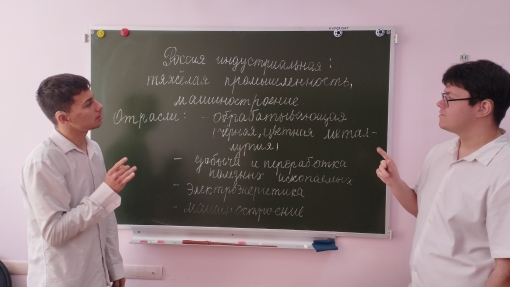 Россия индустриальная:
тяжёлая промышленность,
машиностроение
Отрасли: - обрабатывающая
(чёрная, цветная метал-
лургия)
- добыча и переработка
полезных ископаемых
- Электроэнергетика
- машиностроение